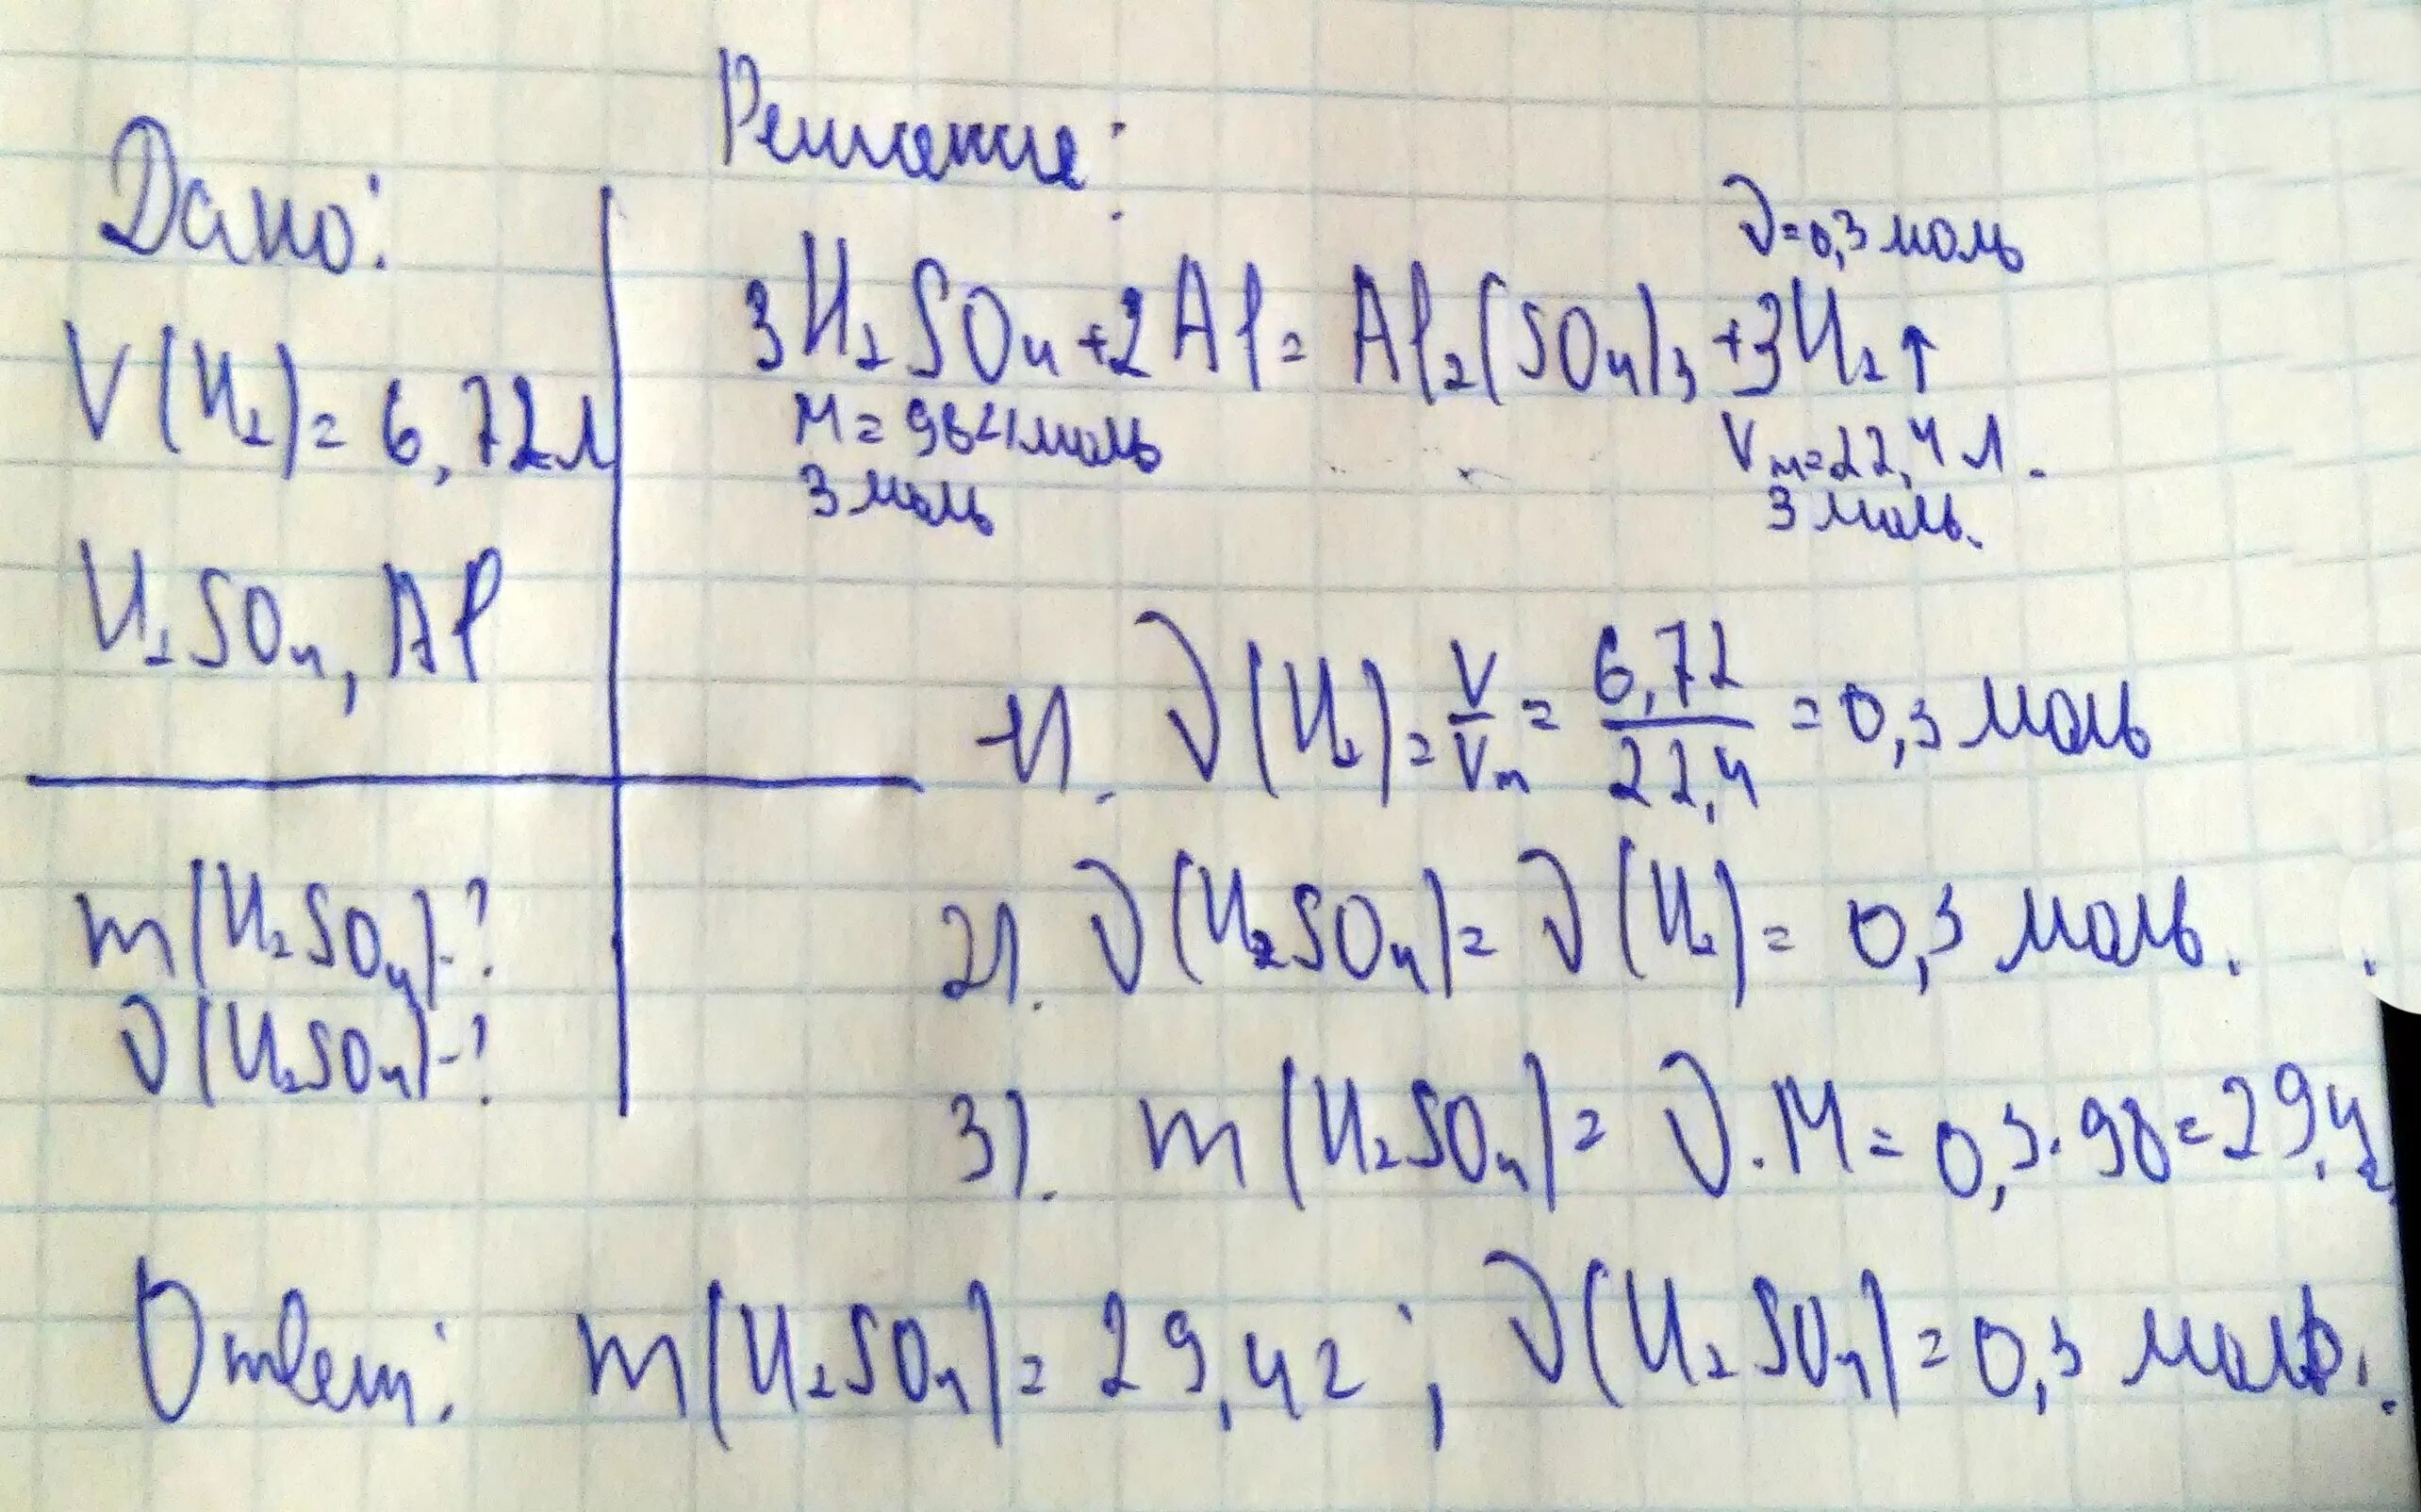 Дано:
V(H₂)=6,72л
H₂SO₄, Al
m(H₂SO₄)-?
ν(H₂SO₄)-?
Решение:
ν=0,3 моль
3H₂SO₄+2Al=Al₂(SO₄)₃+3H₂↑
M=98г/моль
Vm=22,4 л.
3 моль
3 моль.
1). ν(H₂)=V/Vm=6,72/22,4=0,3 моль
2). ν(H₂SO₄)=ν(H₂)=0,3 моль.
3). m(H₂SO₄)=ν·M=0,3·98=29,4г
Ответ: m(H₂SO₄)=29,4г; ν(H₂SO₄)=0,3 моль.